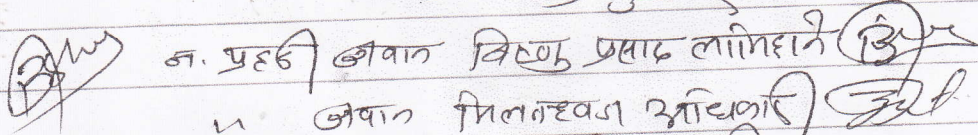 ज. प्रहरी जवान विष्णु प्रसाद लामिछाने
〃 जवान मिलनध्वज अधिकारी